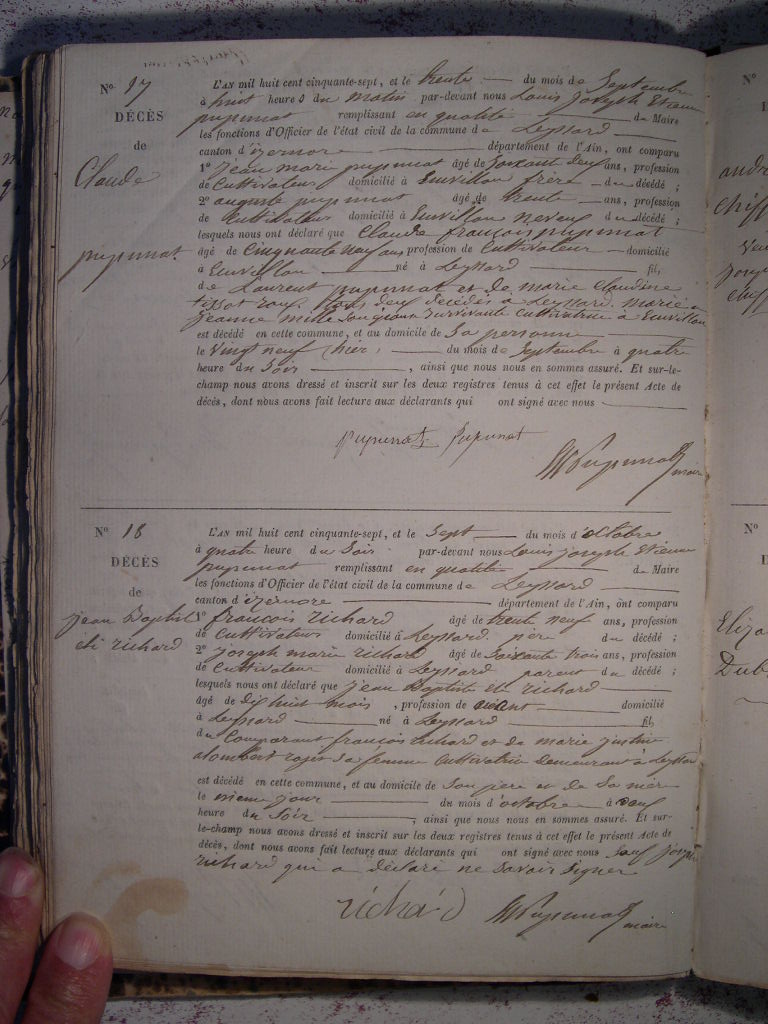 N° 17
DÉCÈS
de
Claude
pupunat
L'AN mil huit cent cinquante-sept, et le trente du mois de Septembre
à huit heures du matin par-devant nous Louis Joseph Etienne
pupunat remplissant en qualité de Maire
les fonctions d'Officier de l'état civil de la commune de Leyssard
canton d'izernore département de l'Ain, ont comparu
1° Jean marie pupunat âgé de Soixante deux ans, profession
de Cultivateur domicilié à Leuvillon frère du décédé ;
2° auguste pupunat âgé de trente ans, profession
de Cultivateur domicilié à Leuvillon neveu du décédé ;
lesquels nous ont déclaré que Claude françois pupunat
âgé de Cinquante neuf ans profession de Cultivateur domicilié
à Leuvillon né à Leyssard fils
de Laurent pupunat et de marie Claudine
tissot tous deux décédés à Leyssard. marie
jeanne Survivante Cultivatrice à Leuvillon
est décédé en cette commune, et au domicile de Sa personne
le vingt neuf hier, du mois de Septembre à quatre
heure du Soir, ainsi que nous nous en sommes assuré. Et sur-le-
champ nous avons dressé et inscrit sur les deux registres tenus à cet effet le présent Acte de
décès, dont nous avons fait lecture aux déclarants qui ont signé avec nous
pupunat pupunat
Pupunat maire
N° 18
DÉCÈS
de
jean Baptiste
éli richard
L'AN mil huit cent cinquante-sept, et le Sept du mois d'octobre
à quatre heure du Soir par-devant nous Louis joseph Etienne
pupunat remplissant en qualité de Maire
les fonctions d'Officier de l'état civil de la commune de Leyssard
canton d'izernore département de l'Ain, ont comparu
1° françois richard âgé de trente neuf ans, profession
de Cultivateur domicilié à Leyssard. père du décédé ;
2° joseph marie richard âgé de Soixante trois ans, profession
de Cultivateur domicilié à Leyssard parent du décédé ;
lesquels nous ont déclaré que jean Baptiste éli richard
âgé de dix huit mois, profession de domicilié
à Leyssard né à Leyssard fils
du Comparant françois richard et de marie justine
alombert Sa femme Cultivatrice demeurant à Leyssard
est décédé en cette commune, et au domicile de Son père et de Sa mère
le même jour du mois d'octobre à deux
heure du Soir, ainsi que nous nous en sommes assuré. Et sur-
le-champ nous avons dressé et inscrit sur les deux registres tenus à cet effet le présent Acte de
décès, dont nous avons fait lecture aux déclarants qui ont signé avec nous Sauf joseph
richard qui a déclaré ne Savoir Signer
richard Pupunat maire